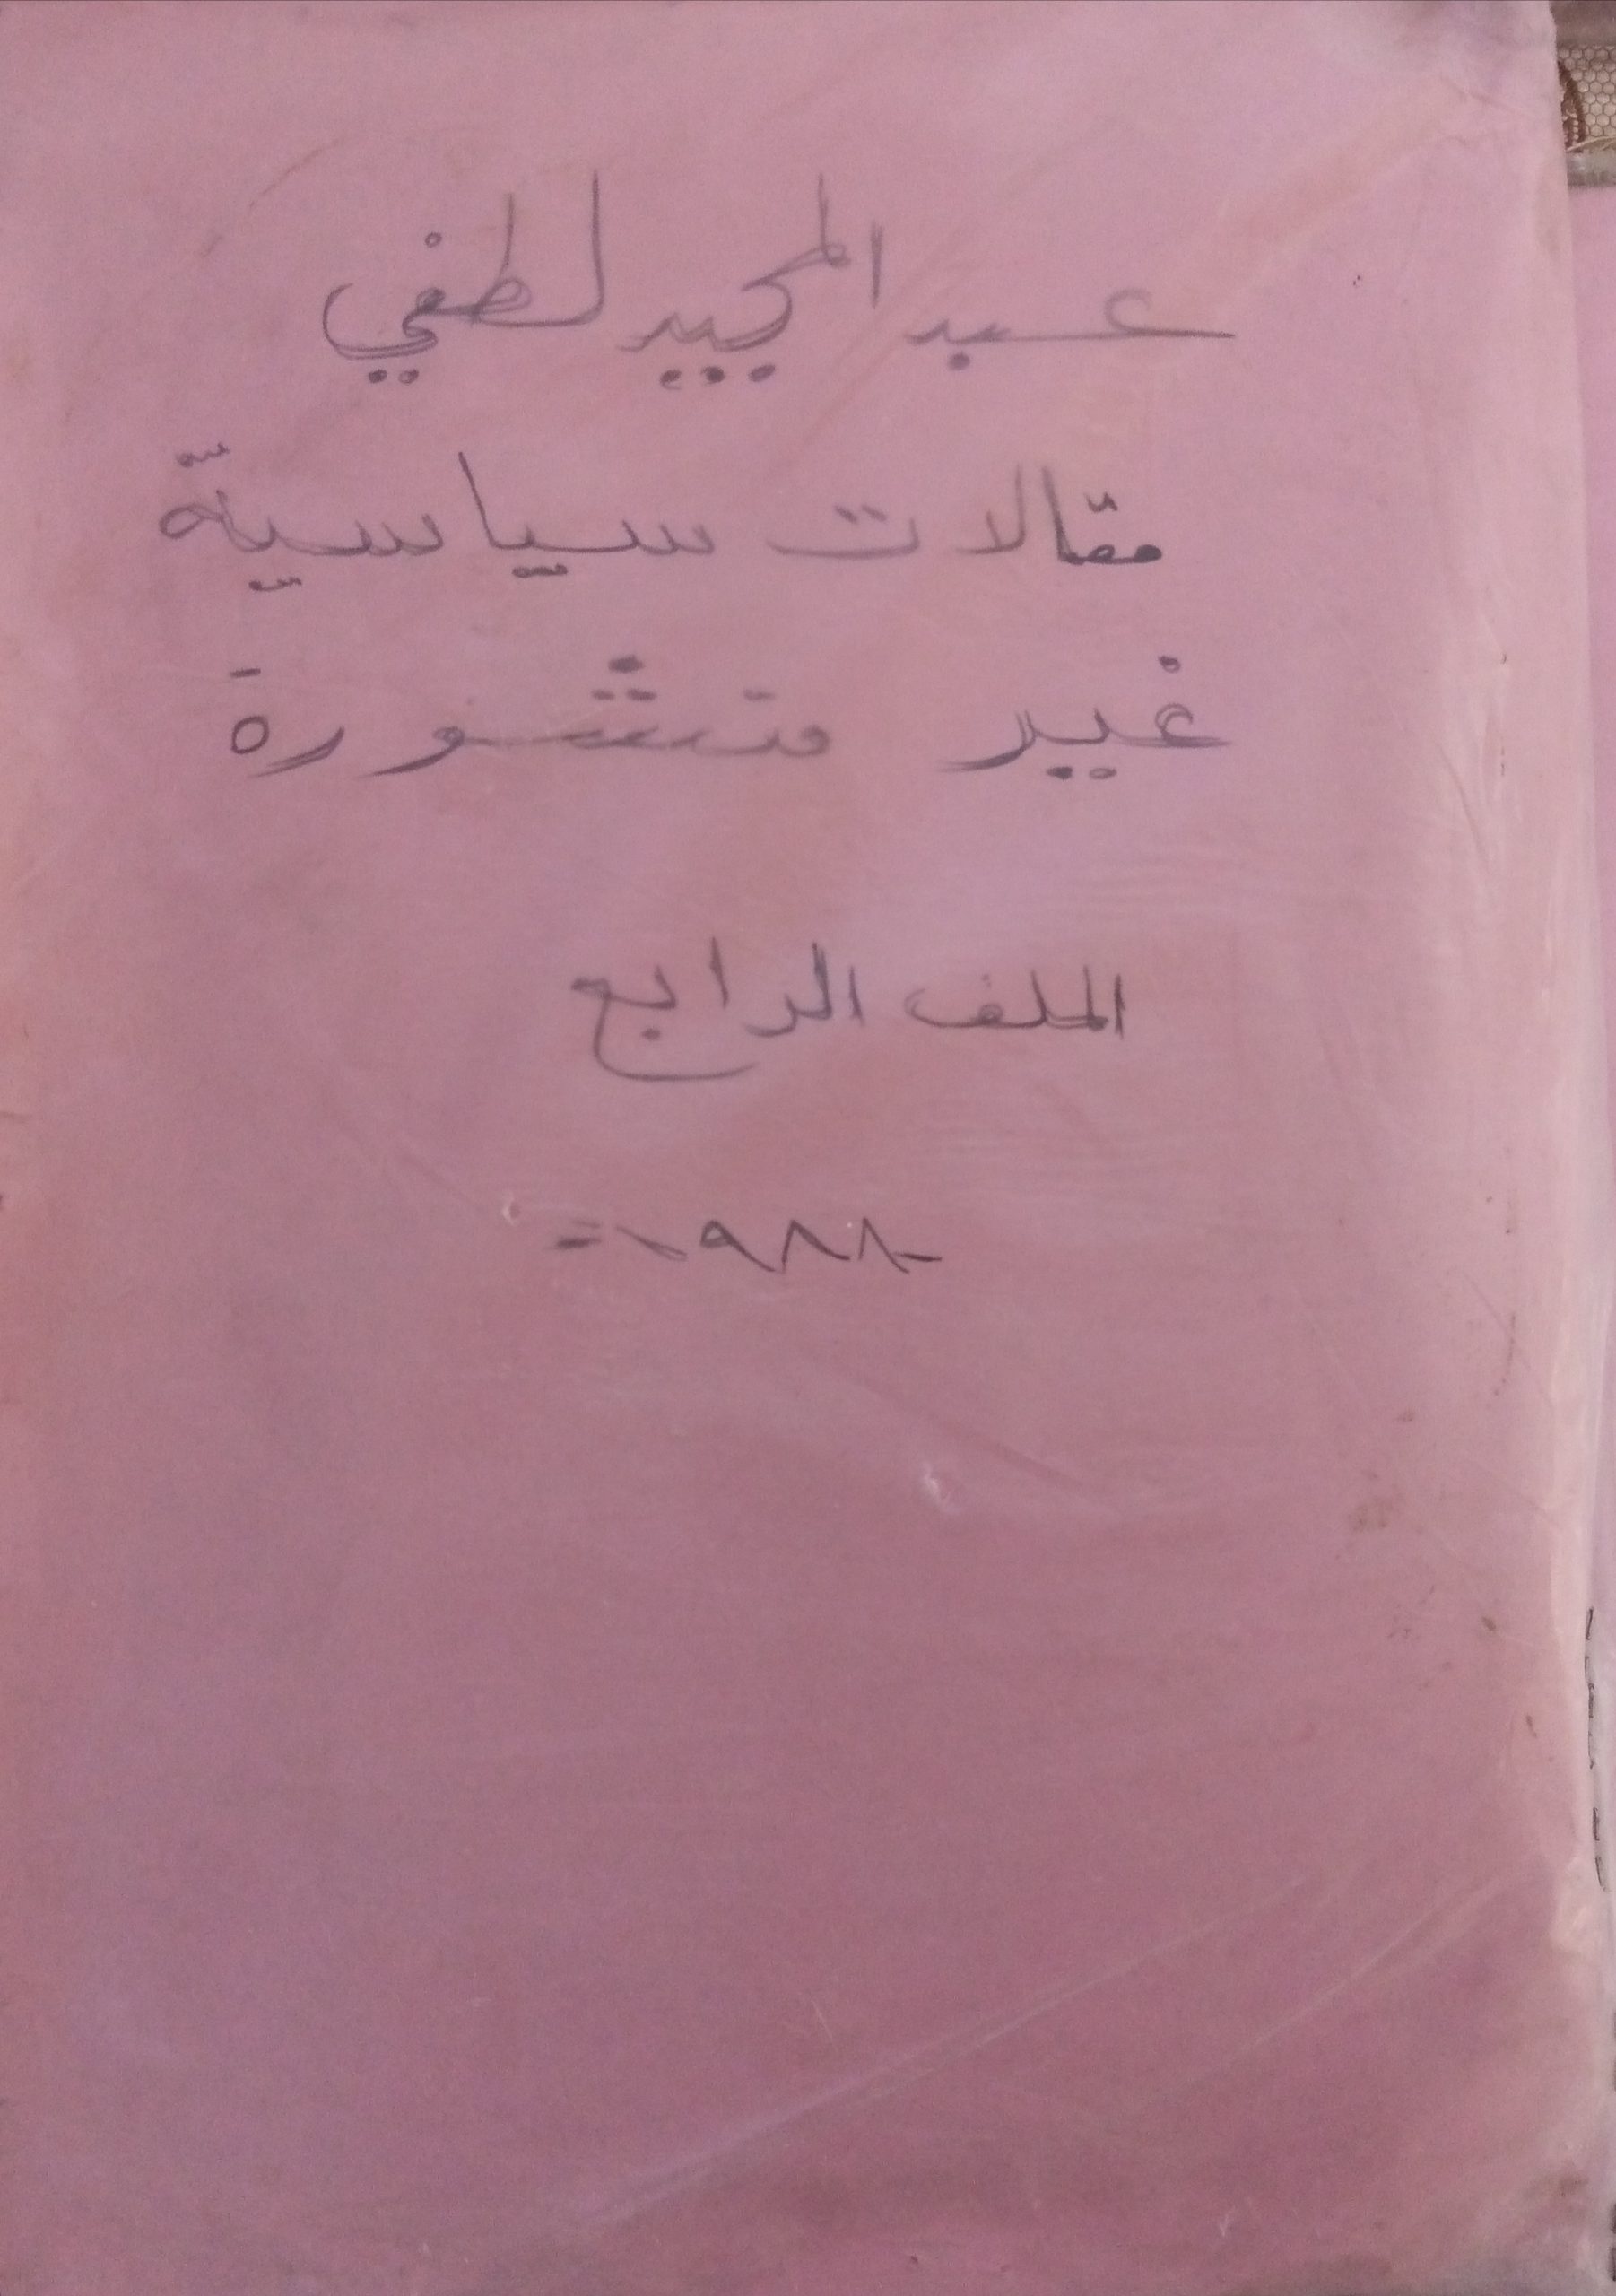 عبد المجيد لطفي
مقالات سياسية
غير منشورة
الملف الرابع
= ١٩٨٨ -